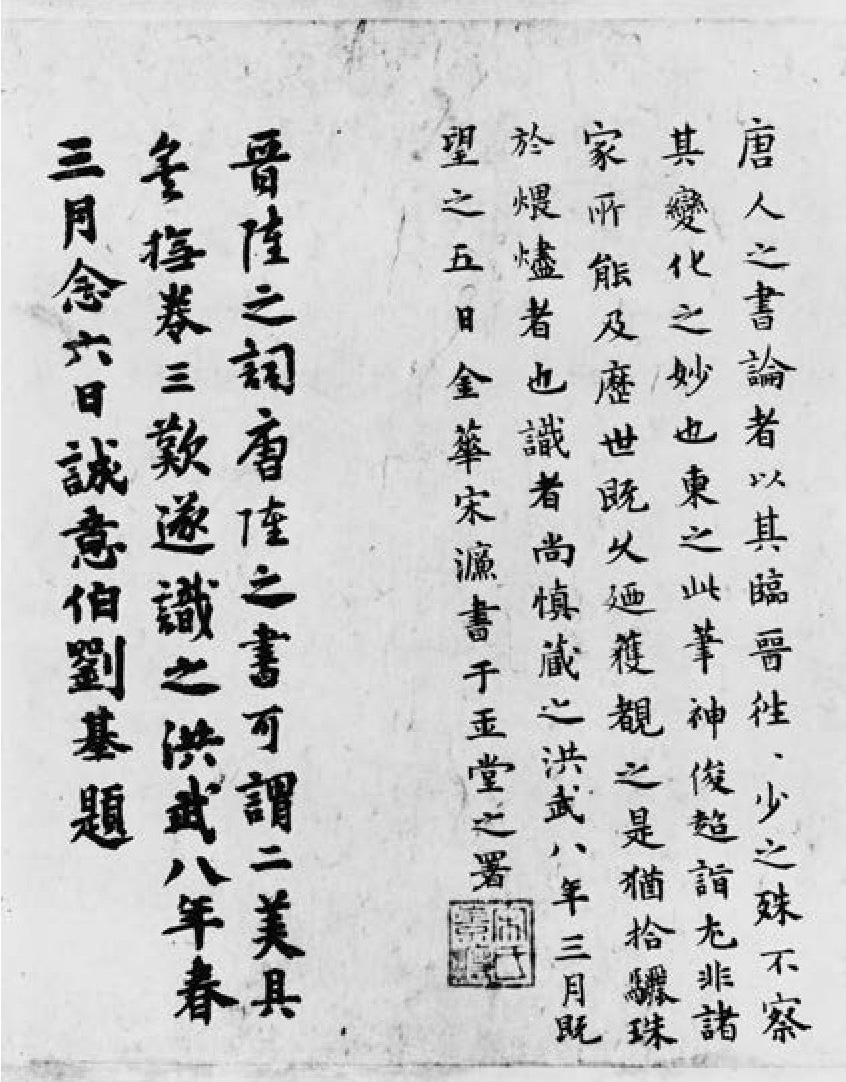 唐人之書論者以其臨晉往、少之殊不察
其變化之妙也東之此筆神俊超詣尤非諸
家所能及歷世既久廼獲覩之是猶拾驪珠
於煨燼者也識者尚慎藏之洪武八年三月既
望之五日金華宋濂書于玉堂之署
晉陸之詞唐陸之書可謂二美具
矣撫卷三歎遂識之洪武八年春
三月念六日誠意伯劉基題